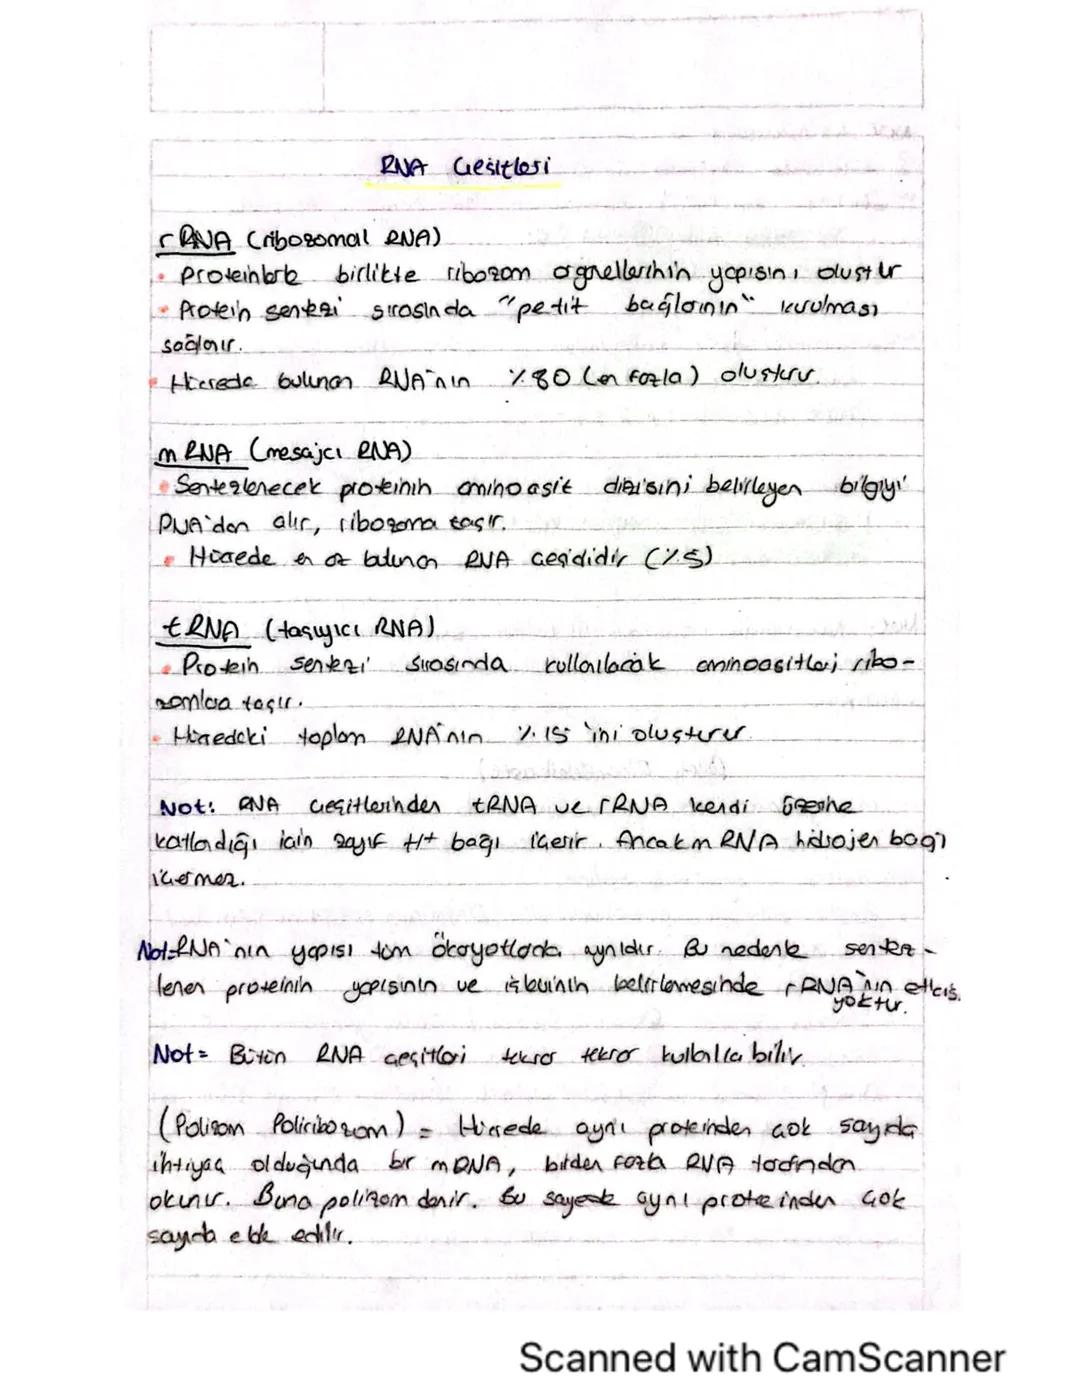 RNA Çeşitleri
rRNA (ribozomal RNA)
• Proteinlerle birlikte ribozom organellerinin yapısını oluştur
• Protein sentezi sırasında "petit bağlarının" kurulması
sağlanır.
• Hücrede bulunan RNA'nın %80 (en fazla) oluşturur.
mRNA (mesajcı RNA)
• Sentezlenecek proteinin aminoasit dizisini belirleyen bilgiyi
DNA'dan alır, ribozoma taşır.
• Hücrede en az bulunan RNA çeşididir (%5)
tRNA (taşıyıcı RNA)
• Protein sentezi sırasında kullanılacak aminoasitleri ribo-
zomlara taşır.
• Hücredeki toplam RNA'nın %15'ini oluşturur.
Not: RNA çeşitlerinden tRNA ve rRNA kendi üzerine
katlandığı için zayıf H+ bağı içerir. Ancak mRNA hidrojen bağı
içermez.
Not=RNA'nın yapısı tüm ökaryotlarda aynıdır. Bu nedenle sentez-
lenen proteinin yapısının ve işlevinin belirlemesinde rRNA'nın etkisi
yoktur.
Not= Bütün RNA çeşitleri tekrar tekrar kullanılabilir.
(Polizom Poliribozom) = Hücrede aynı proteinden çok sayıda
ihtiyaç olduğunda bir mRNA, birden fazla RNA tarafından
okunur. Buna polizom denir. Bu sayede aynı proteinden çok
sayıda elde edilir.
Scanned with CamScanner